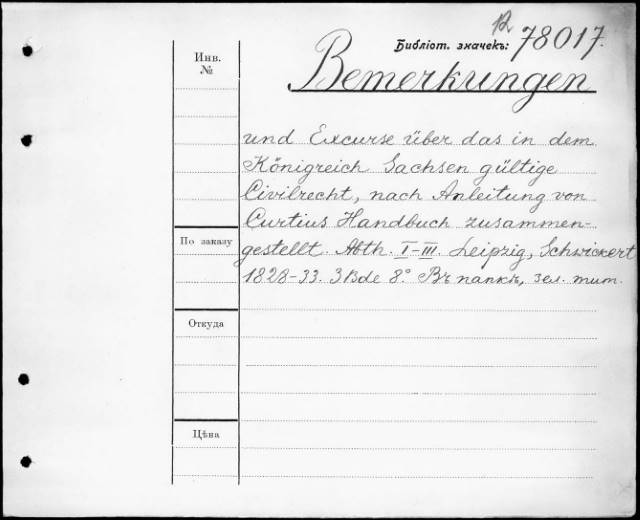 12
Библіот. значекъ: 78017.
Инв. №
Bemerkungen
und Excurse über das in dem
Königreich Sachsen gültige
Civilrecht, nach Anleitung von
Curtius Handbuch zusammen-
По заказу
gestellt. Abth. I-III. Leipzig, Schwickert
1828-33. 3 Bde 8° Въ папкѣ, зел. тит.
Откуда
Цѣна